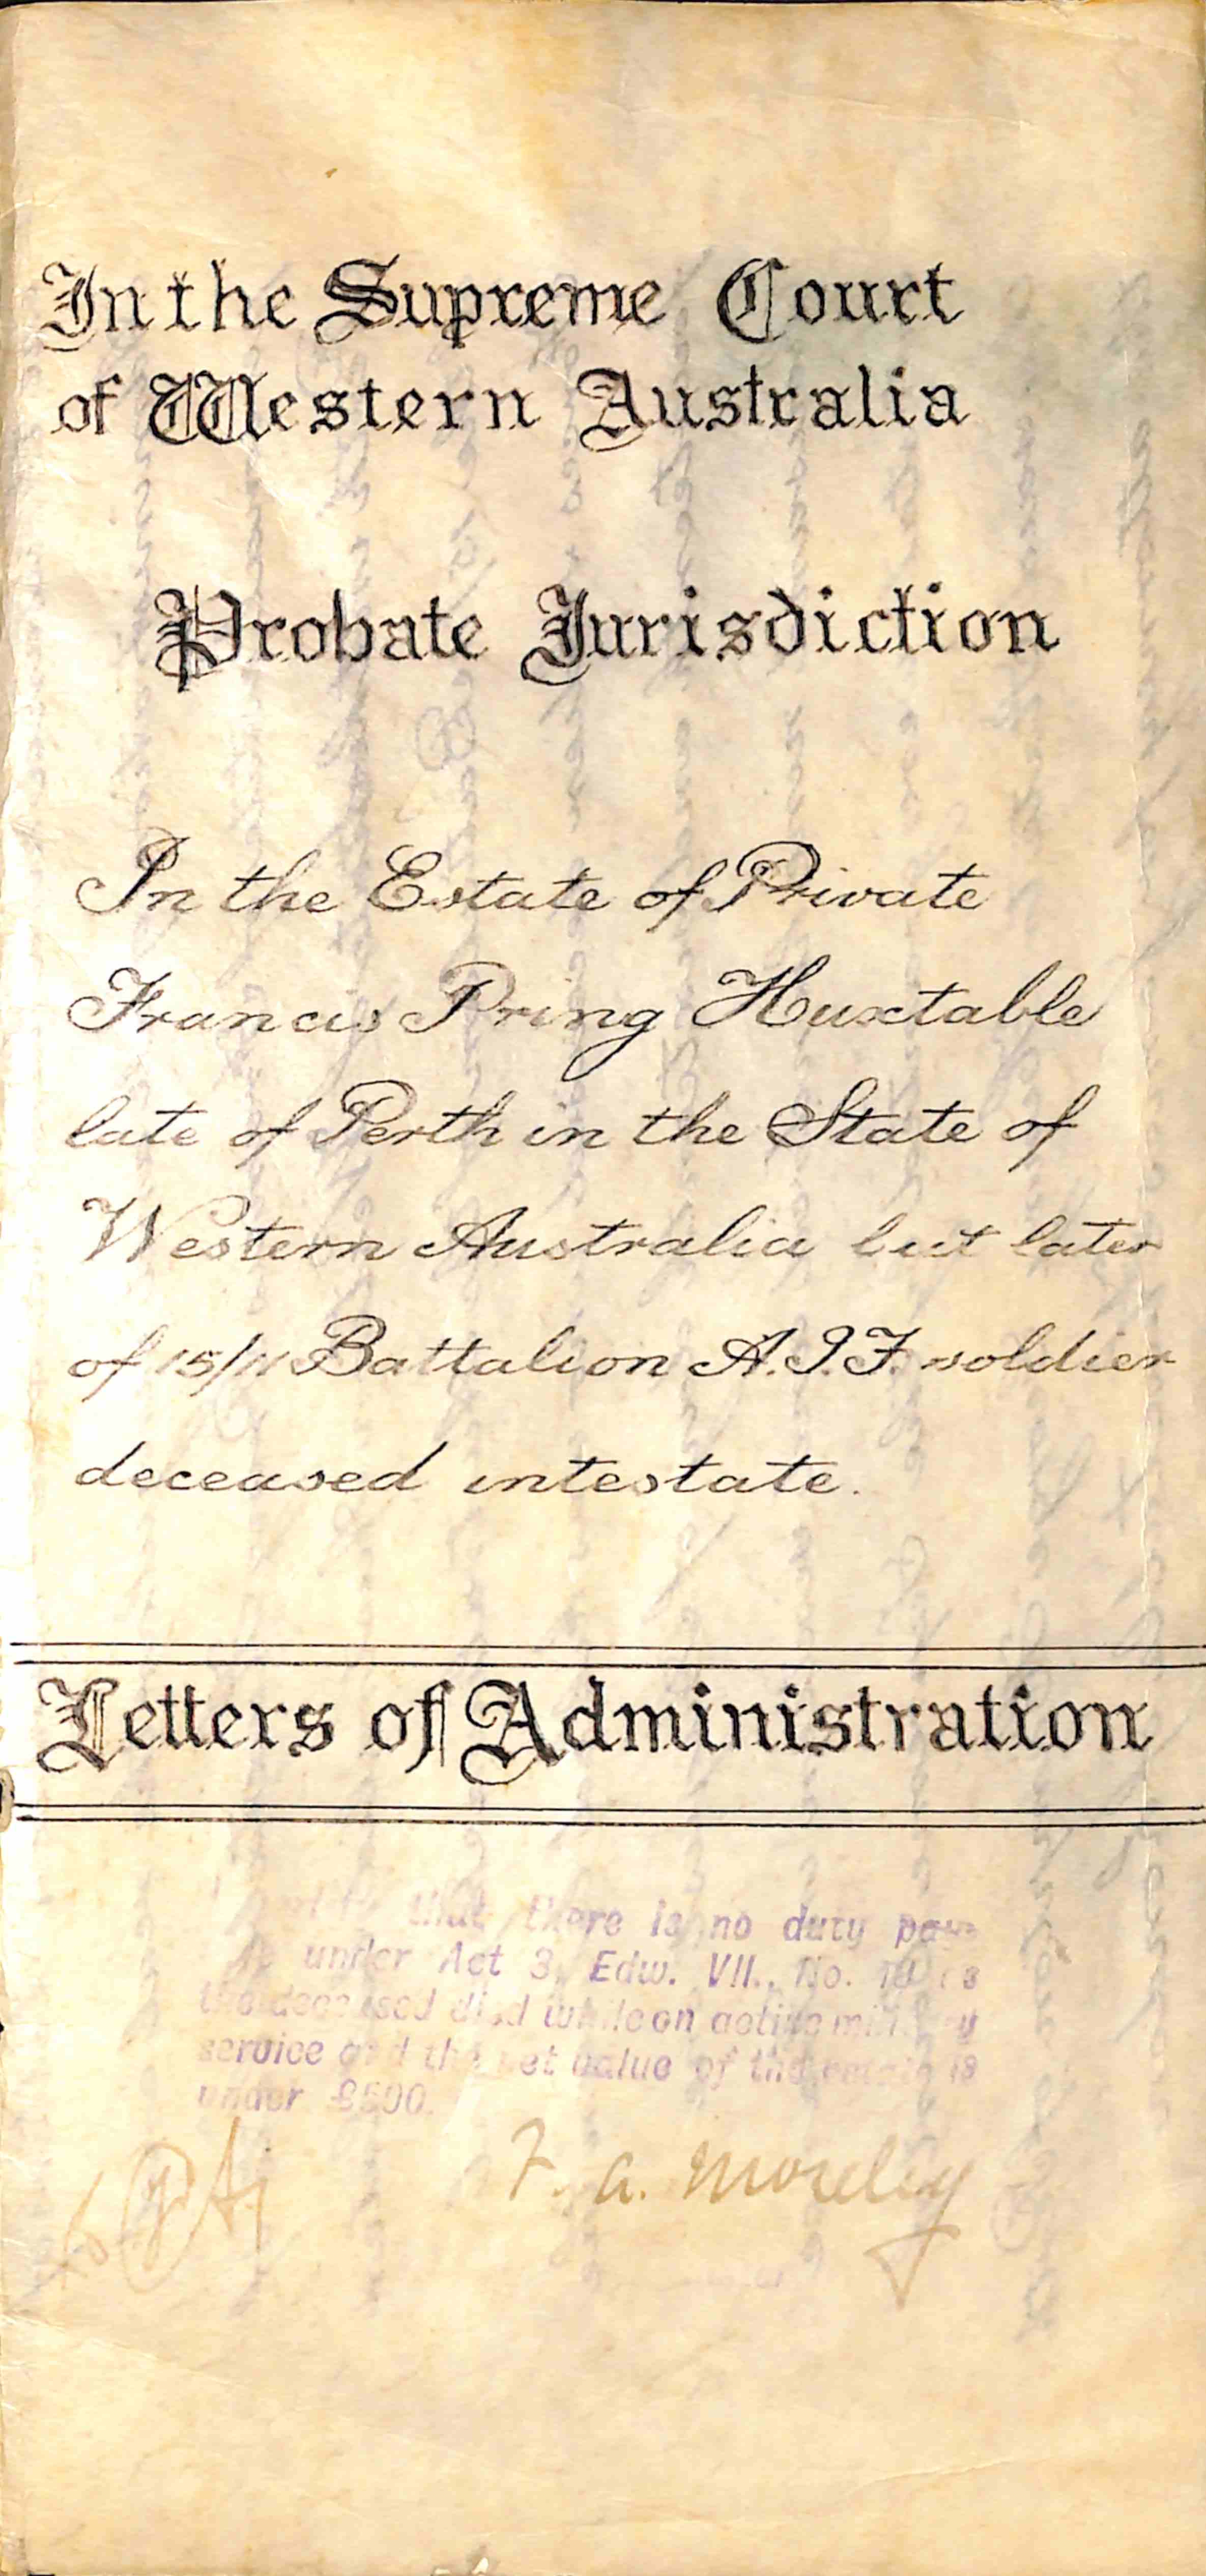 In the Supreme Court
of Western Australia
Probate Jurisdiction
In the Estate of Private
Francis Pring Huxtable
late of Perth in the State of
Western Australia but later
of 15/11 Battalion A.I.F. soldier
deceased intestate.
Letters of Administration
that there is no duty
under Act 3, Edw. VII., No.
the deceased died while on active military
service and the net value of the estate is
under £500.
F. A. Moseley